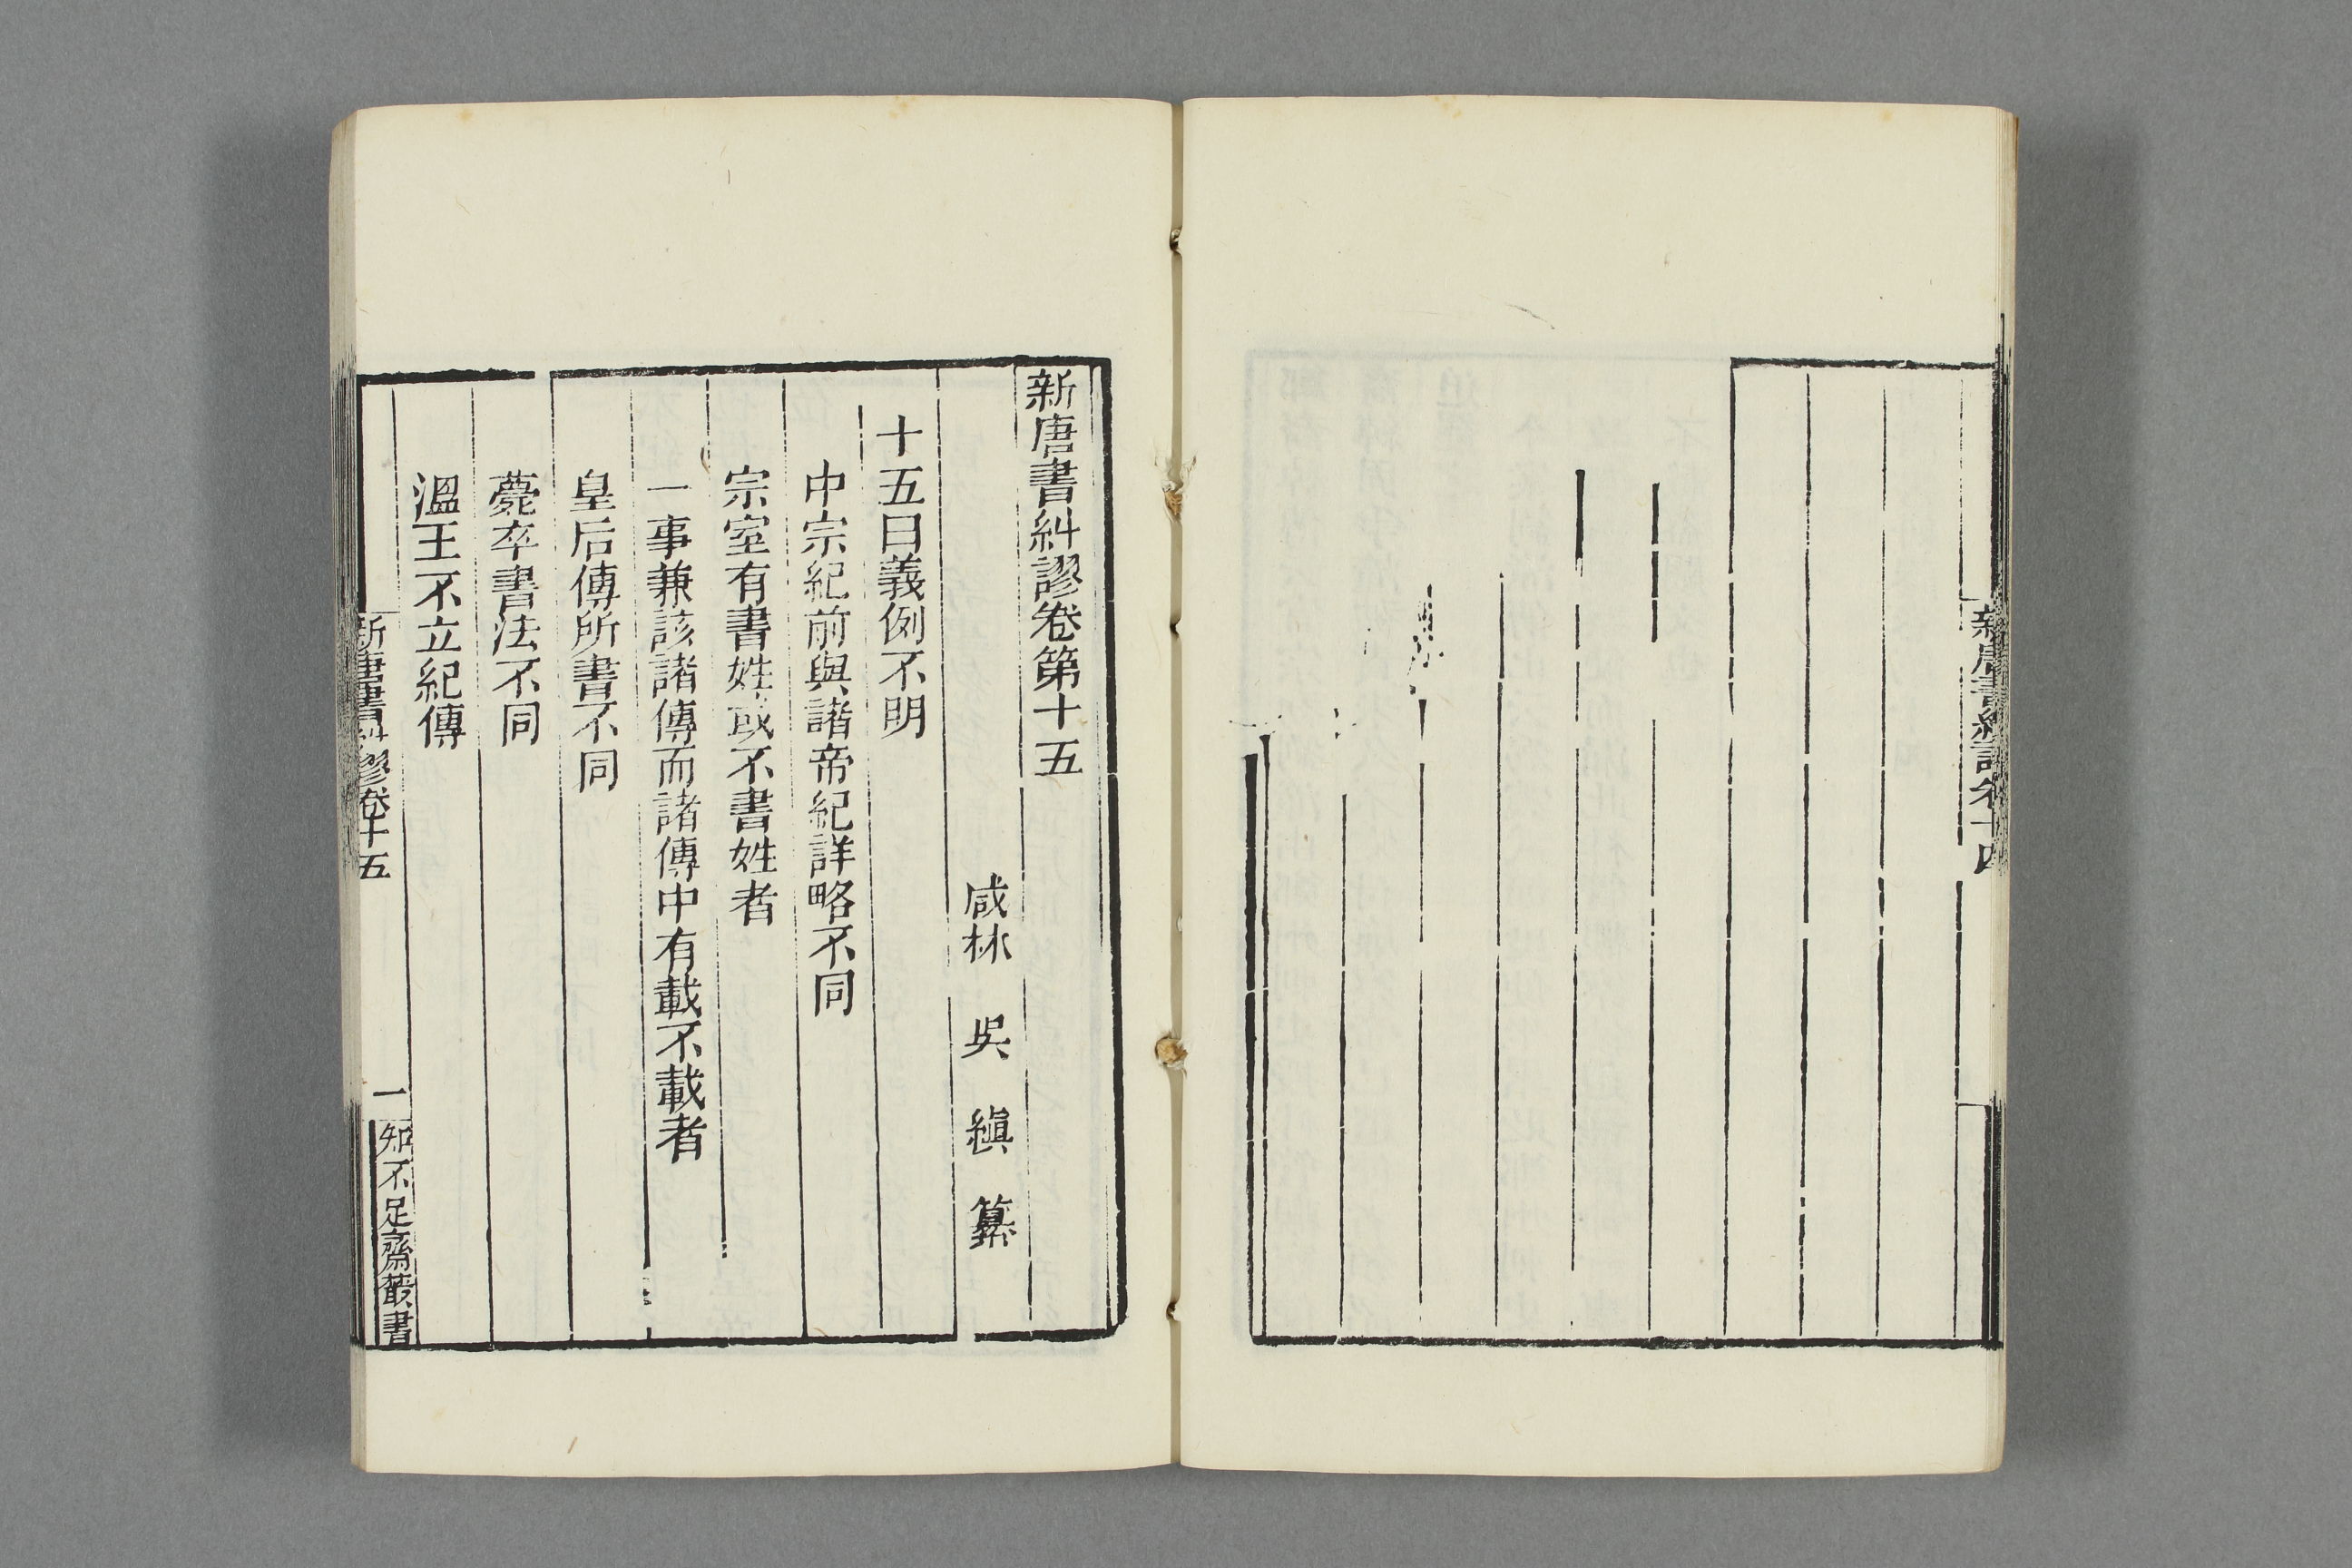 新唐書糾謬卷十四
新唐書糾謬卷第十五
咸林　吳　縝　纂
十五曰義例不明
中宗紀前與諸帝紀詳略不同
宗室有書姓或不書姓者
一事兼該諸傳而諸傳中有載不載者
皇后傳所書不同
薨卒書法不同
溫王不立紀傳
新唐書糾謬卷十五
一
知不足齋叢書